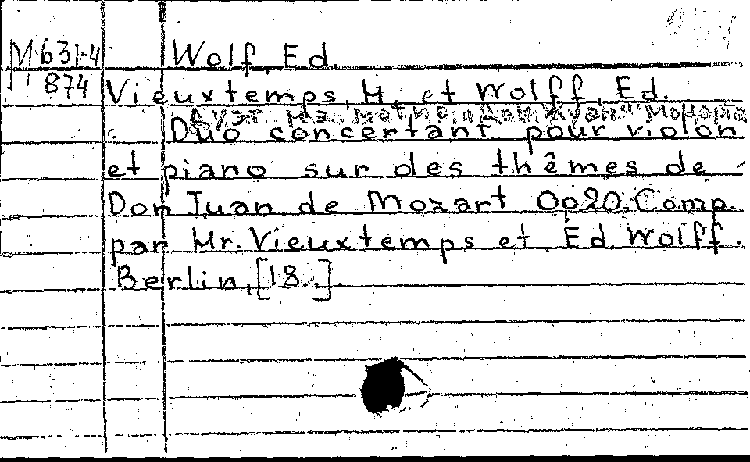 M 631-4 Wolf, Ed.
874 Vieuxtemps, H. et Wolff, Ed.
Duo concertant pour violon
et piano sur des thêmes de
Don Juan de Mozart Op20. Comp.
par Mr. Vieuxtemps et Ed. Wolff.
Berlin, [18..].